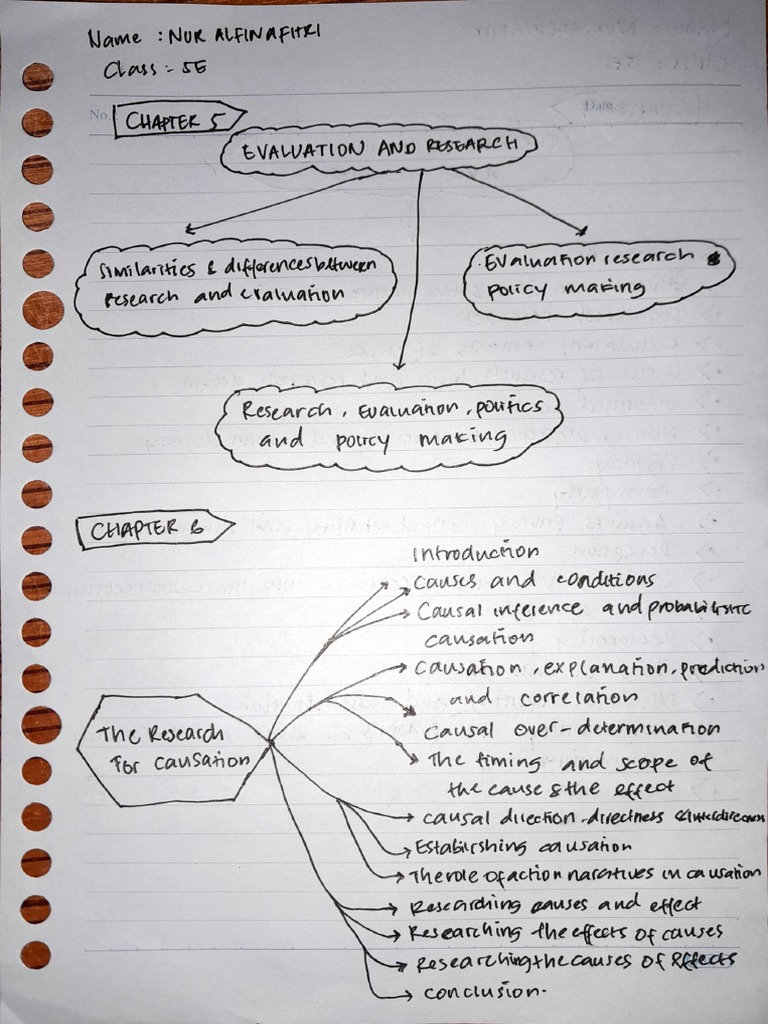 Name : NUR ALFINAFITRI
Class : 5E
No.
Date
CHAPTER 5
EVALUATION AND RESEARCH
Similarities & differences between
research and evaluation
Evaluation research
policy making
Research, Evaluation, politics
and policy making
CHAPTER 6
Introduction
Causes and conditions
Causal inference and probabilistic
causation
Causation, explanation, prediction
and correlation
Causal over-determination
The timing and scope of
the cause & the effect
The Research
For Causation
causal direction, directness &
Establishing causation
The role of action narratives in causation
Researching causes and effect
Researching the effects of causes
Researching the causes of Effects
conclusion.